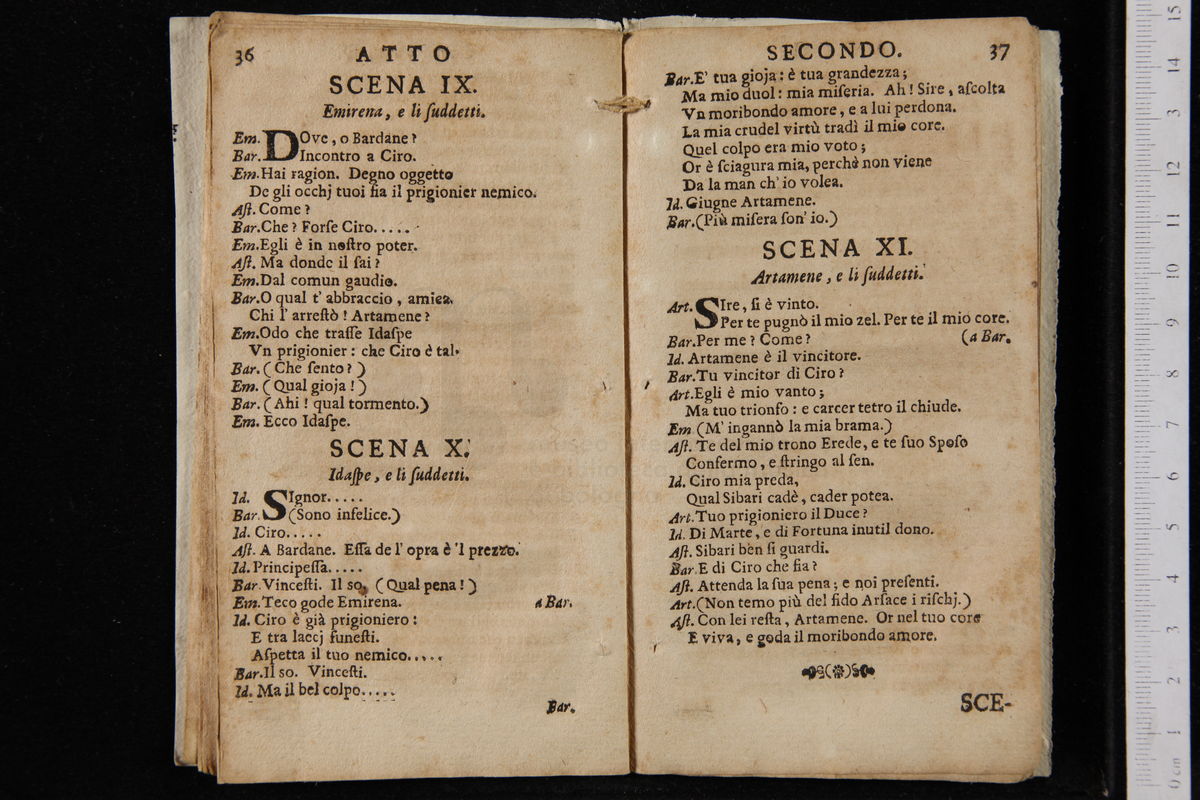 36 ATTO
SCENA IX.
Emirena, e li ſuddetti.
Em. DOve, o Bardane?
Bar. Incontro a Ciro.
Em. Hai ragion. Degno oggetto
De gli occhj tuoi ſia il prigionier nemico.
Aſt. Come?
Bar. Che? Forſe Ciro.....
Em. Egli è in noſtro poter.
Aſt. Ma donde il ſai?
Em. Dal comun gaudio.
Bar. O qual t' abbraccio, amica.
Chi l' arreſtò! Artamene?
Em. Odo che traſſe Idaſpe
Vn prigionier: che Ciro è tal.
Bar. (Che ſento?)
Em. (Qual gioja!)
Bar. (Ahi! qual tormento.)
Em. Ecco Idaſpe.
SCENA X.
Idaſpe, e li ſuddetti.
Id. SIgnor.....
Bar. (Sono infelice.)
Id. Ciro.....
Aſt. A Bardane. Eſſa de l' opra è 'l prezzo.
Id. Principeſſa.....
Bar. Vinceſti. Il so. (Qual pena!)
Em. Teco gode Emirena. a Bar.
Id. Ciro è già prigioniero:
E tra laccj funeſti.
Aſpetta il tuo nemico.....
Bar. Il so. Vinceſti.
Id. Ma il bel colpo.....
Bar.
SECONDO. 37
Bar. E' tua gioja: è tua grandezza;
Ma mio duol: mia miſeria. Ah! Sire, aſcolta
Vn moribondo amore, e a lui perdona.
La mia crudel virtù tradì il mio core.
Quel colpo era mio voto;
Or è ſciagura mia, perchè non viene
Da la man ch' io volea.
Id. Giugne Artamene.
Bar. (Più miſera ſon' io.)
SCENA XI.
Artamene, e li ſuddetti.
Art. SIre, ſi è vinto.
Per te pugnò il mio zel. Per te il mio core.
Bar. Per me? Come? (a Bar.
Id. Artamene è il vincitore.
Bar. Tu vincitor di Ciro?
Art. Egli è mio vanto;
Ma tuo trionfo: e carcer tetro il chiude.
Em (M' ingannò la mia brama.)
Aſt. Te del mio trono Erede, e te ſuo Spoſo
Confermo, e ſtringo al ſen.
Id. Ciro mia preda,
Qual Sibari cadè, cader potea.
Art. Tuo prigioniero il Duce?
Id. Di Marte, e di Fortuna inutil dono.
Aſt. Sibari ben ſi guardi.
Bar. E di Ciro che fia?
Aſt. Attenda la ſua pena; e noi preſenti.
Art. (Non temo più del fido Arſace i riſchj.)
Aſt. Con lei reſta, Artamene. Or nel tuo core
E viva, e goda il moribondo amore.
SCE-